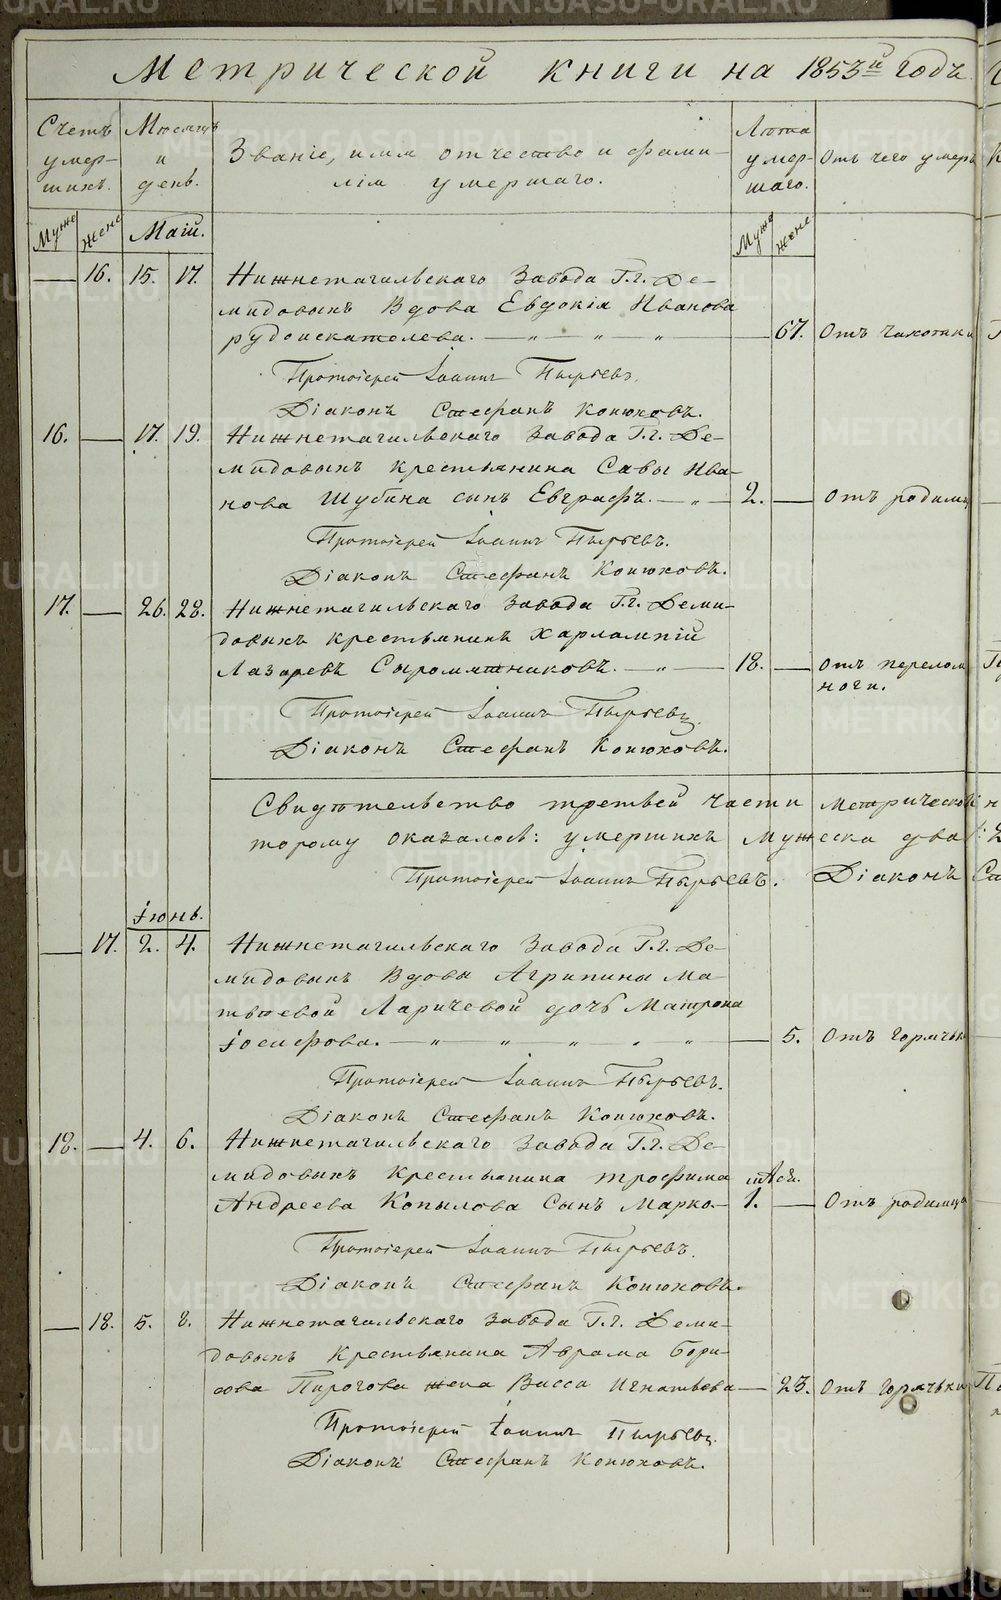 Метрической книги на 1853й годъ
Счетъ умершихъ. Мѣсяцъ и день. Званіе, имя отчество и фамилія умершаго. Лѣта умершаго. Отъ чего умеръ
Муже Жене Маій. Муже Жене
16. 15. 17. Нижнетагильскаго Завода Г.г. Де-
мидовыхъ Вдова Евдокія Иванова
рудоискателева. 67. Отъ чахотки
Протоіерей Іоаннъ Пырьевъ.
Діаконъ Стефанъ Конюховъ.
16. 17. 19. Нижнетагильскаго Завода Г.г. Де-
мидовыхъ крестьянина Савы Ива-
нова Шубина сынъ Евграфъ. 2. Отъ родимц
Протоіерей Іоаннъ Пырьевъ.
Діаконъ Стефанъ Конюховъ.
17. 26. 28. Нижнетагильскаго Завода Г.г. Деми-
довыхъ крестьянинъ Харлампій
Лазаревъ Сыромятниковъ. 18. Отъ перелом
ноги.
Протоіерей Іоаннъ Пырьевъ.
Діаконъ Стефанъ Конюховъ.
Свидѣтельство третьей части Метрической
торому оказалось: умершихъ Мужеска два
Протоіерей Іоаннъ Пырьевъ. Діаконъ Ст
Іюнь.
17. 2. 4. Нижнетагильскаго Завода Г.г. Де-
мидовыхъ Вдовы Агрипины Ма-
твѣевой Ларичевой дочь Матрона
Іосифова. 5. Отъ горячьк
Протоіерей Іоаннъ Пырьевъ.
Діаконъ Стефанъ Конюховъ.
18. 4. 6. Нижнетагильскаго Завода Г.г. Де-
мидовыхъ Крестьянина трофима
Андреева Копылова Сынъ Марко. 1. Отъ родимца
Протоіерей Іоаннъ Пырьевъ.
Діаконъ Стефанъ Конюховъ.
18. 5. 8. Нижнетагильскаго Завода Г.г. Деми-
довыхъ Крестьянина Аврама Бори-
сова Пирогова жена Васса Игнатьева 23. Отъ Горячьки
Протоіерей Іоаннъ Пырьевъ.
Діаконъ Стефанъ Конюховъ.
METRIKI.GASO-URAL.RU